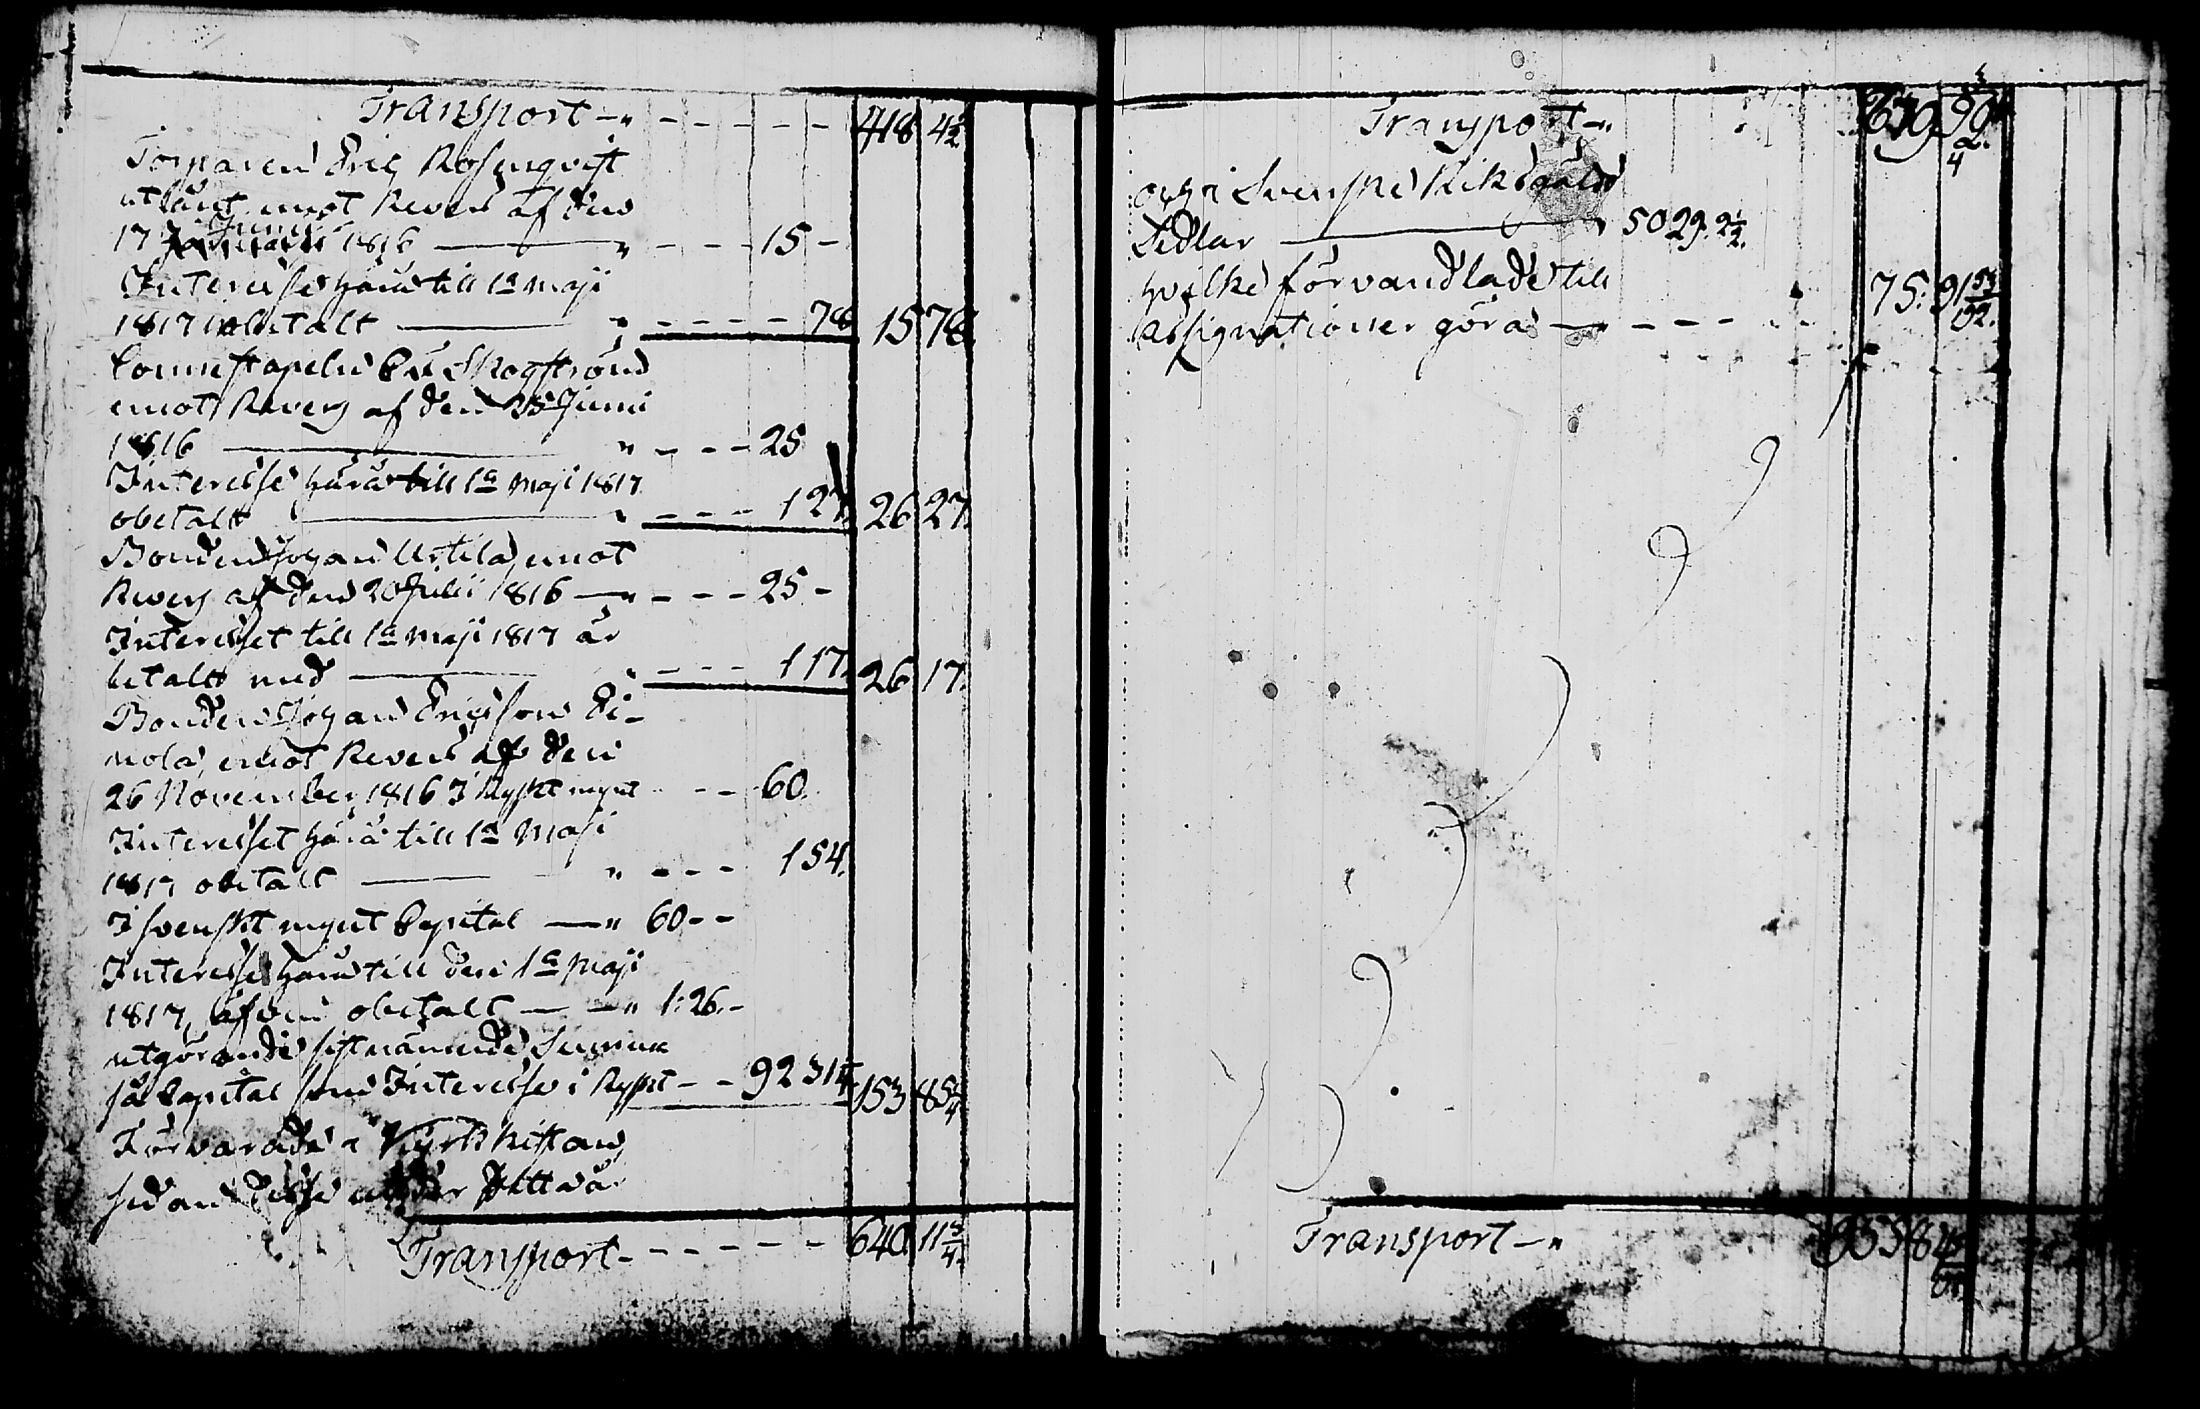 Transport - " - - - - - 418 4 1/2
Torparen Eric Rosenqvist
utlånt emot Revers af den
17 Junii 1816 — " - - - 15 -
Interesse härå till 1a Maji
1817 obetalt — " - - - - 78 15 78
Connestapeln Skogström
emot Revers af den 25 Junii
1816 — " - - - 25
Interesse härå till 1a Maji 1817
obetalt — " - - - 1 27. 26 27.
Bonden Johan Urtila emot
Revers af den 20 Julii 1816 — " - - - 25 -
Interesset till 1a Maji 1817 är
betalt med — " - - - 1 17. 26 17.
Bonden Johan Ericsson
emot Revers af den
26 November 1816 I Ryskt mynt - - - 60.
Interesset härå till 1a Maji
1817 obetalt — " - - - 1 54.
I svenskt mynt Capital — " 60 - -
Interesse härå till den 1a Maji
1817, äfven obetalt — — " 1: 26. -
utgörande sistnämnde Summa
så Capital som Interesse i Ryskt - - 92 31 1/4 153 85 1/4
Förvarade i Kyrk kistan
sedan desse
Transport - - - - - - 640 11 3/4.
Transport - "
och i Svenske Riksgälds
Sedlar — " 50 29. 2 1/2.
hvilke förvandlade till
Assignationer göra — " - - - 75. 91
Transport - "